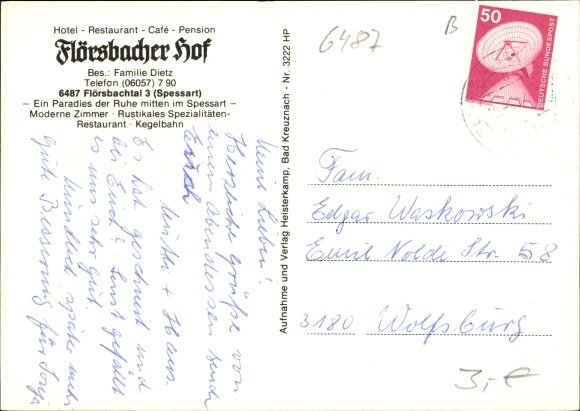 Hotel - Restaurant - Café - Pension
Flörsbacher Hof
Bes.: Familie Dietz
Telefon (06057) 7 90
6487 Flörsbachtal 3 (Spessart)
– Ein Paradies der Ruhe mitten im Spessart –
Moderne Zimmer · Rustikales Spezialitäten-
Restaurant · Kegelbahn
Meine Lieben!
Herzliche Grüße von
einem Abendessen senden
Euch
+ Hans.
Es hat geschneit und
bei Euch? Sonst gefällt
es uns sehr gut.
Mündlich später mehr
gute Besserung für
Aufnahme und Verlag Heisterkamp, Bad Kreuznach - Nr. 3222 HP
6487
B
50
DEUTSCHE BUNDESPOST
Fam.
Edgar Waskowski
Emil Nolde Str. 58
3180 Wolfsburg
3,- €